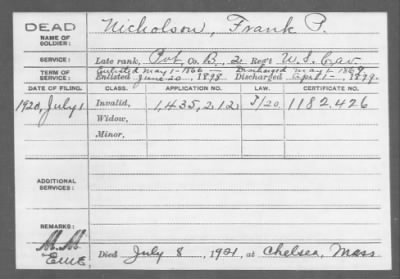 DEAD
NAME OF SOLDIER:
Nicholson, Frank P.
SERVICE:
Late rank, Pvt, Co. B, 2 Reg't U.S. Cav.
TERM OF SERVICE:
Enlisted May 1-1866 Discharged May 1-1869
Enlisted June 20, 1898 Discharged Apr 1-, 1899.
DATE OF FILING. CLASS. APPLICATION NO. LAW. CERTIFICATE NO.
1920, July 1 Invalid, 1,435,212 J/20 1182,426
Widow,
Minor,
ADDITIONAL SERVICES:
REMARKS:
M.M.
Died July 8, 1921, at Chelsea, Mass